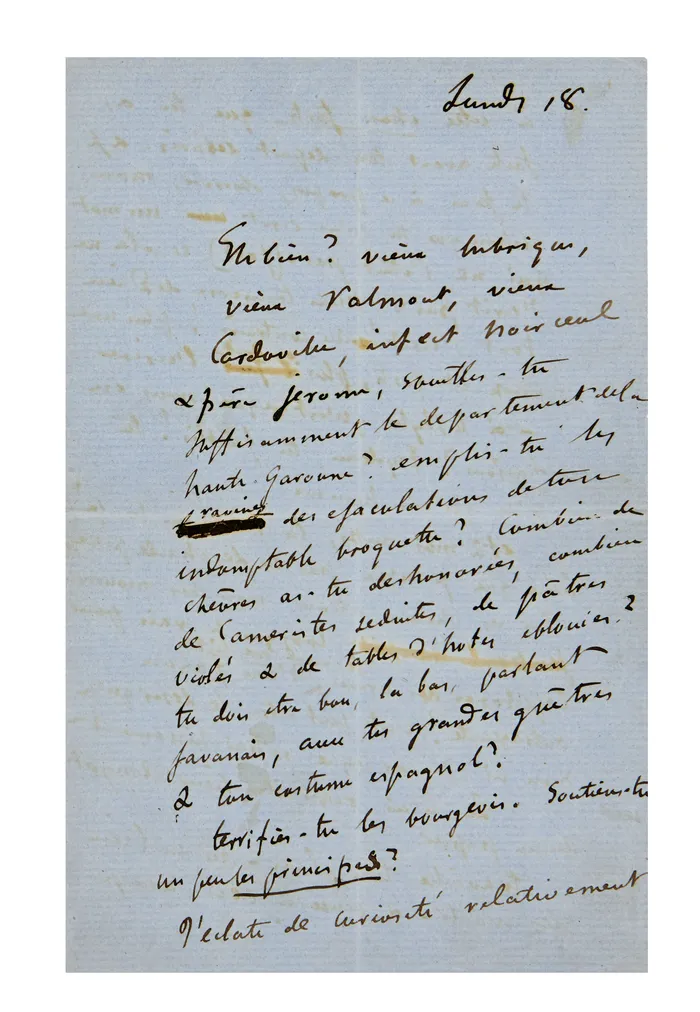 Lundi 18.
Eh bien? vieux lubrique,
vieux Valmont, vieux
Cardoville, infect noirceul
& père jérome, souilles-tu
suffisamment le departement de la
haute Garonne? emplis-tu les
ravines des ejaculations de ton
indomptable broquette? Combien de
chêvres as-tu deshonorées, combien
de Cameristes seduites, de pâtres
violés & de tables d'hotes eblouies?
tu dois etre bon, la bas, parlant
javanais, avec tes grandes guêtres
& ton costume espagnol?
terrifies-tu les bourgeois. Soutiens-tu
un peu les principes?
J'eclate de curiosité relativement